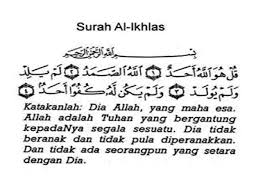 Surah Al-Ikhlas
بِسْمِ اللَّهِ الرَّحْمَٰنِ الرَّحِيمِ
قُلْ هُوَ اللَّهُ أَحَدٌ ۝١ اللَّهُ الصَّمَدُ ۝٢ لَمْ يَلِدْ
وَلَمْ يُولَدْ ۝٣ وَلَمْ يَكُن لَّهُ كُفُوًا أَحَدٌ ۝٤
Katakanlah: Dia Allah, yang maha esa.
Allah adalah Tuhan yang bergantung
kepadaNya segala sesuatu. Dia tidak
beranak dan tidak pula diperanakkan.
Dan tidak ada seorangpun yang setara
dengan Dia.